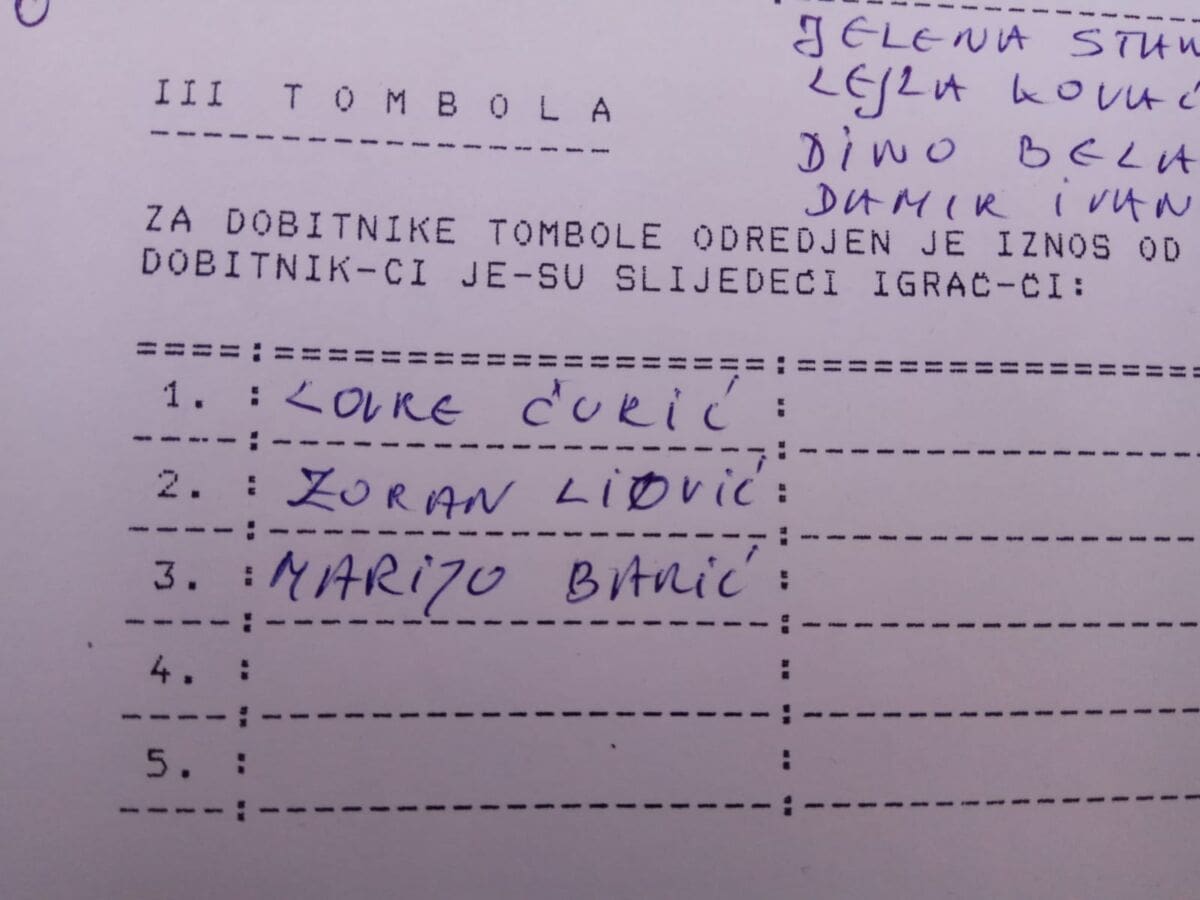 JELENA
LEJLA
DINO
DAMIR
III TOMBOLA
ZA DOBITNIKE TOMBOLE ODREDJEN JE IZNOS OD
DOBITNIK-CI JE-SU SLIJEDEĆI IGRAČ-ČI:
1. LOVRE ĆURIĆ
2. ZORAN LIOVIĆ
3. MARIJO BARIĆ
4.
5.